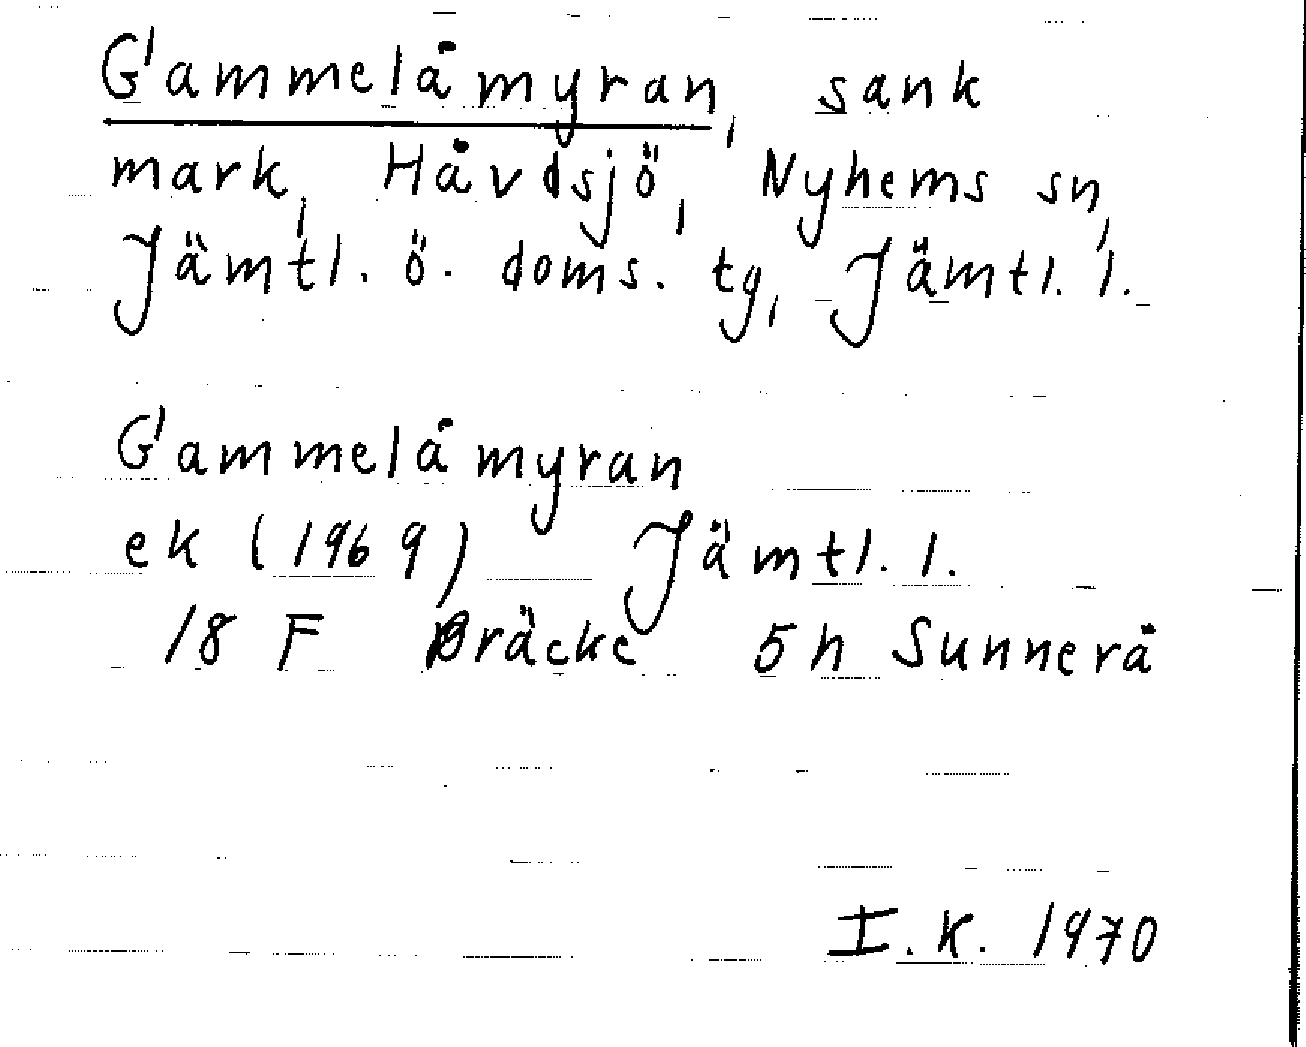 Gammelåmyran, sank
mark, Håvdsjö, Nyhems sn,
Jämtl. ö. doms. tg, Jämtl. l.
Gammelåmyran
ek (1969) Jämtl. l.
18 F Bräcke 5h Sunnerå
I. K. 1970